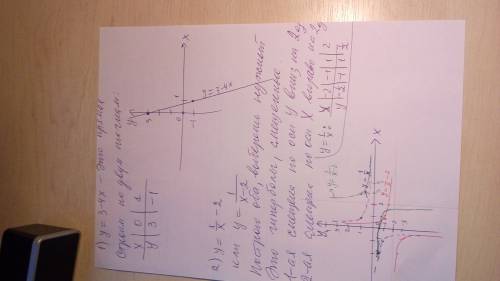 1) y = 3-4x - Это прямая
Строим по двум точкам:
x | 0 | 1
y | 3 | -1
y
3
0
1
-1
x
y=3-4x
2) y = 1/x - 2
или y = 1/(x-2)
Построю оба, выберешь нужный
Это гиперболы, смещенные
1-ая смещена по оси y вниз на 2ед
2-ая смещена по оси X вправо на 2ед
y = 1/x:
x | -2 | -1 | 1 | 2
y | -1/2 | -1 | 1 | 1/2
y
x